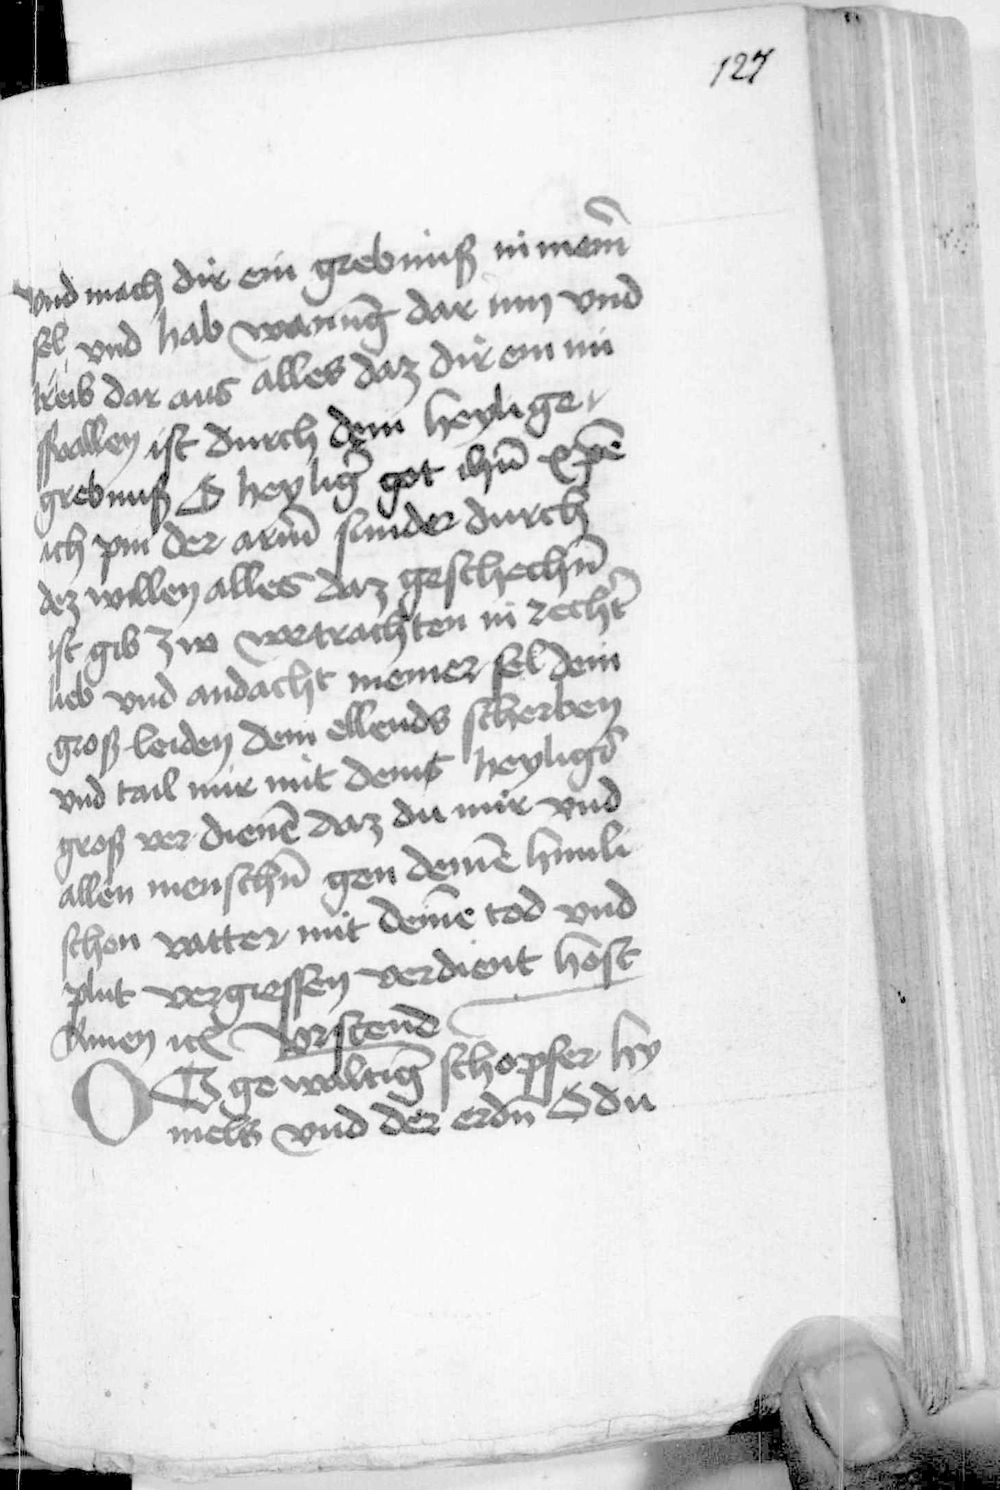 127
vnd mach dir ein grebnuß in mein̄
sel vnd hab wanūg dar inn vnd
treib dar aus alles daz dir ein mi
ssvallen ist durch dein heylige
grebnuß O heyliḡ got ihū xp̄e
ich pin der arm̄ sunder durch
dez willen alles daz geschechn̄
ist gib zw vertrachten in recht̄
lieb vnd andacht meiner sel dein
groß leiden dein ellends sterben
vnd tail mir mit deins heyliḡ
groß ver dienē daz du mir vnd
allen menschn̄ gen deinē himli
schen vatter mit deinē tod vnd
plut vergiessen verdient host
Amen Vrstend
O gewaltiḡ schopfer hy
mels vnd der erdn̄ O du